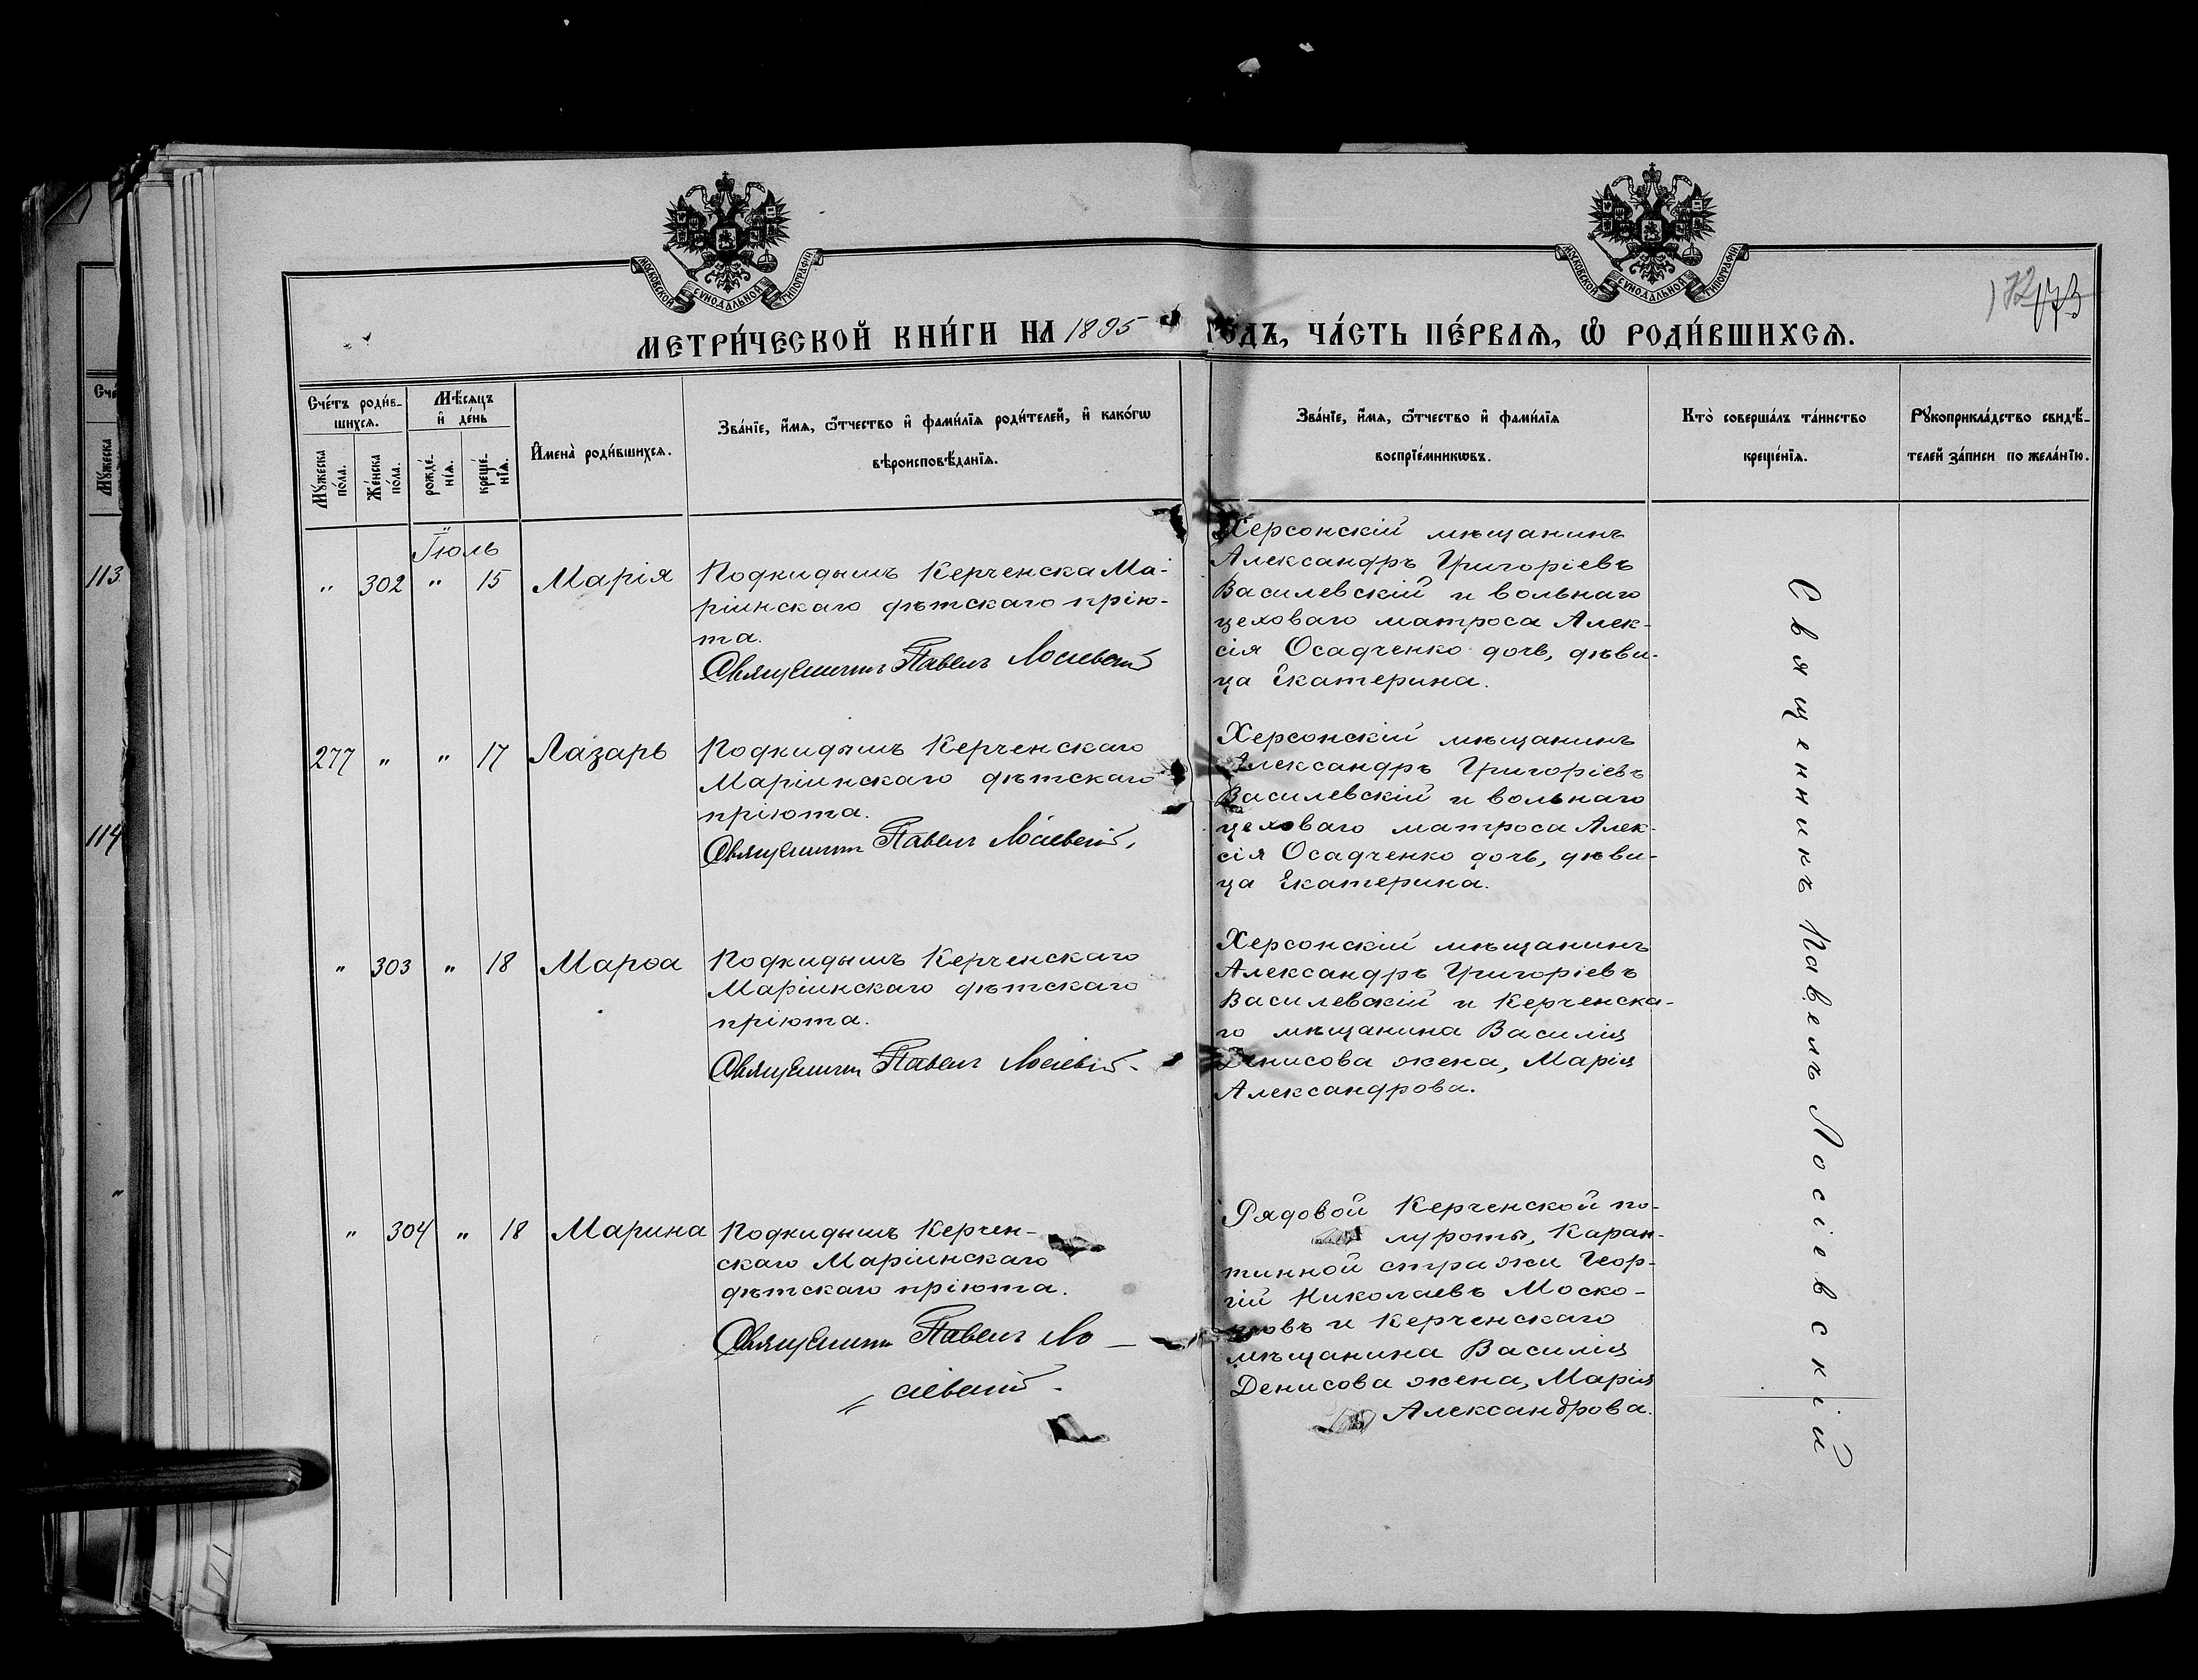 МОСКОВСКОЙ СѴНОДАЛЬНОЙ ТИПОГРАФІИ
МОСКОВСКОЙ СѴНОДАЛЬНОЙ ТИПОГРАФІИ
172 173
МЕТРИ́ЧЕСКОЙ КНИ́ГИ НА 1895 ГОДЪ, ЧА́СТЬ ПЕ́РВАѦ, Ѡ҆ РОДИ́ВШИХСѦ.
Сче́тъ роди́в-
шихсѧ.
Мꙋ́жеска по́ла.
Же́нска по́ла.
Мѣ́сѧцъ
и҆ де́нь
рожде́-
нїѧ.
креще́-
нїѧ.
И҆мена̀ роди́вшихсѧ.
Зва́нїе, и҆́мѧ, ѻ҆́тчество и҆ фами́лїѧ роди́телей, и҆ како́гѡ
вѣроисповѣ́данїѧ.
Зва́нїе, и҆́мѧ, ѻ҆́тчество и҆ фами́лїѧ
воспрїе́мникѡвъ.
Кто̀ соверша́лъ та́инство
креще́нїѧ.
Рꙋкоприкла́дство свидѣ́-
телей за́писи по жела́нїю.
Сче
Мꙋжеска
113
114
"
Іюль
" 302 " 15 Марія
Подкидышъ Керченска Ма-
ріинскаго дѣтскаго прію-
та.
Священникъ Павелъ Лосіевскій
Херсонскій мѣщанинъ
Александръ Григоріевъ
Василевскій и вольнаго
цеховаго матроса Алек-
сія Осадченко дочь, дѣви-
ца Екатерина.
277 " " 17 Лазарь
Подкидышъ Керченскаго
Маріинскаго дѣтскаго
пріюта.
Священникъ Павелъ Лосіевскій.
Херсонскій мѣщанинъ
Александръ Григоріевъ
Василевскій и вольнаго
цеховаго матроса Алек-
сія Осадченко дочь, дѣви-
ца Екатерина.
" 303 " 18 Марѳа
Подкидышъ Керченскаго
Маріинскаго дѣтскаго
пріюта.
Священникъ Павелъ Лосіевскій.
Херсонскій мѣщанинъ
Александръ Григоріевъ
Василевскій и Керченска-
го мѣщанина Василія
Денисова жена, Марія
Александрова.
" 304 " 18 Марина
Подкидышъ Керчен-
скаго Маріинскаго
дѣтскаго пріюта.
Священникъ Павелъ Ло-
сіевскій.
Рядовой Керченской по-
луроты, Каран-
тинной стражи Геор-
гій Николаевъ Моско-
новъ и Керченскаго
мѣщанина Василія
Денисова жена, Марія
Александрова.
Священникъ Павелъ Лосіевскій